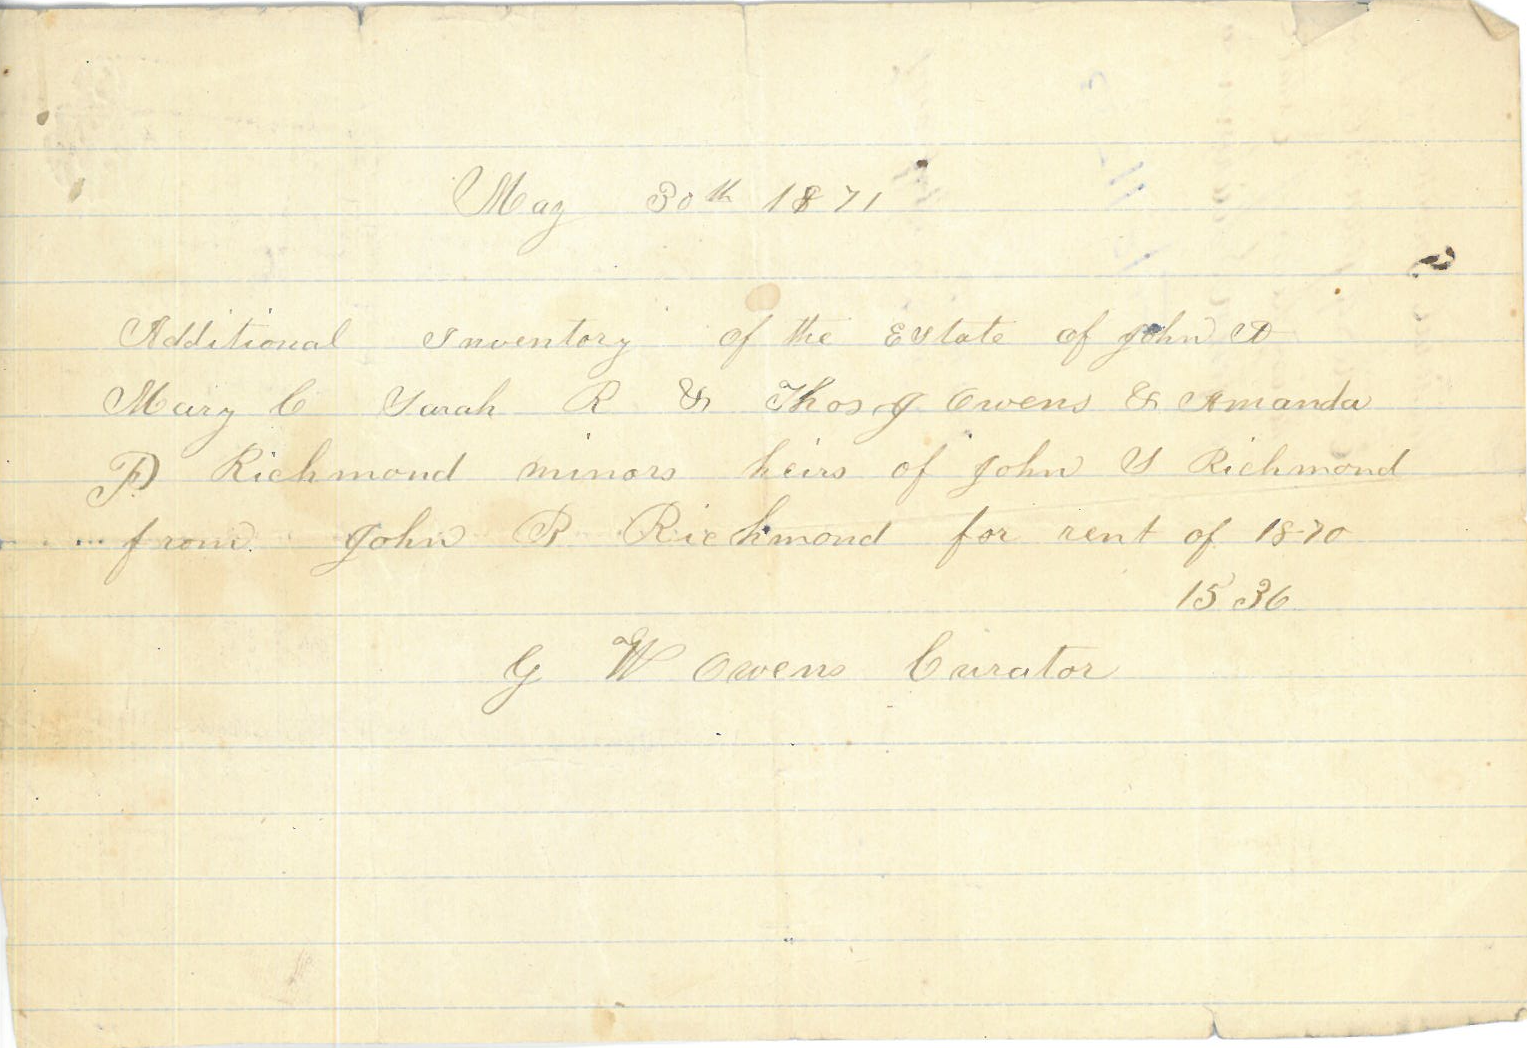 May 30th 1871
Additional Inventory of the Estate of John D
Mary C Sarah R & Thos J Owens & Amanda
F Richmond minors heirs of John S Richmond
from John R Richmond for rent of 1870
15 36
G W Owens Curator